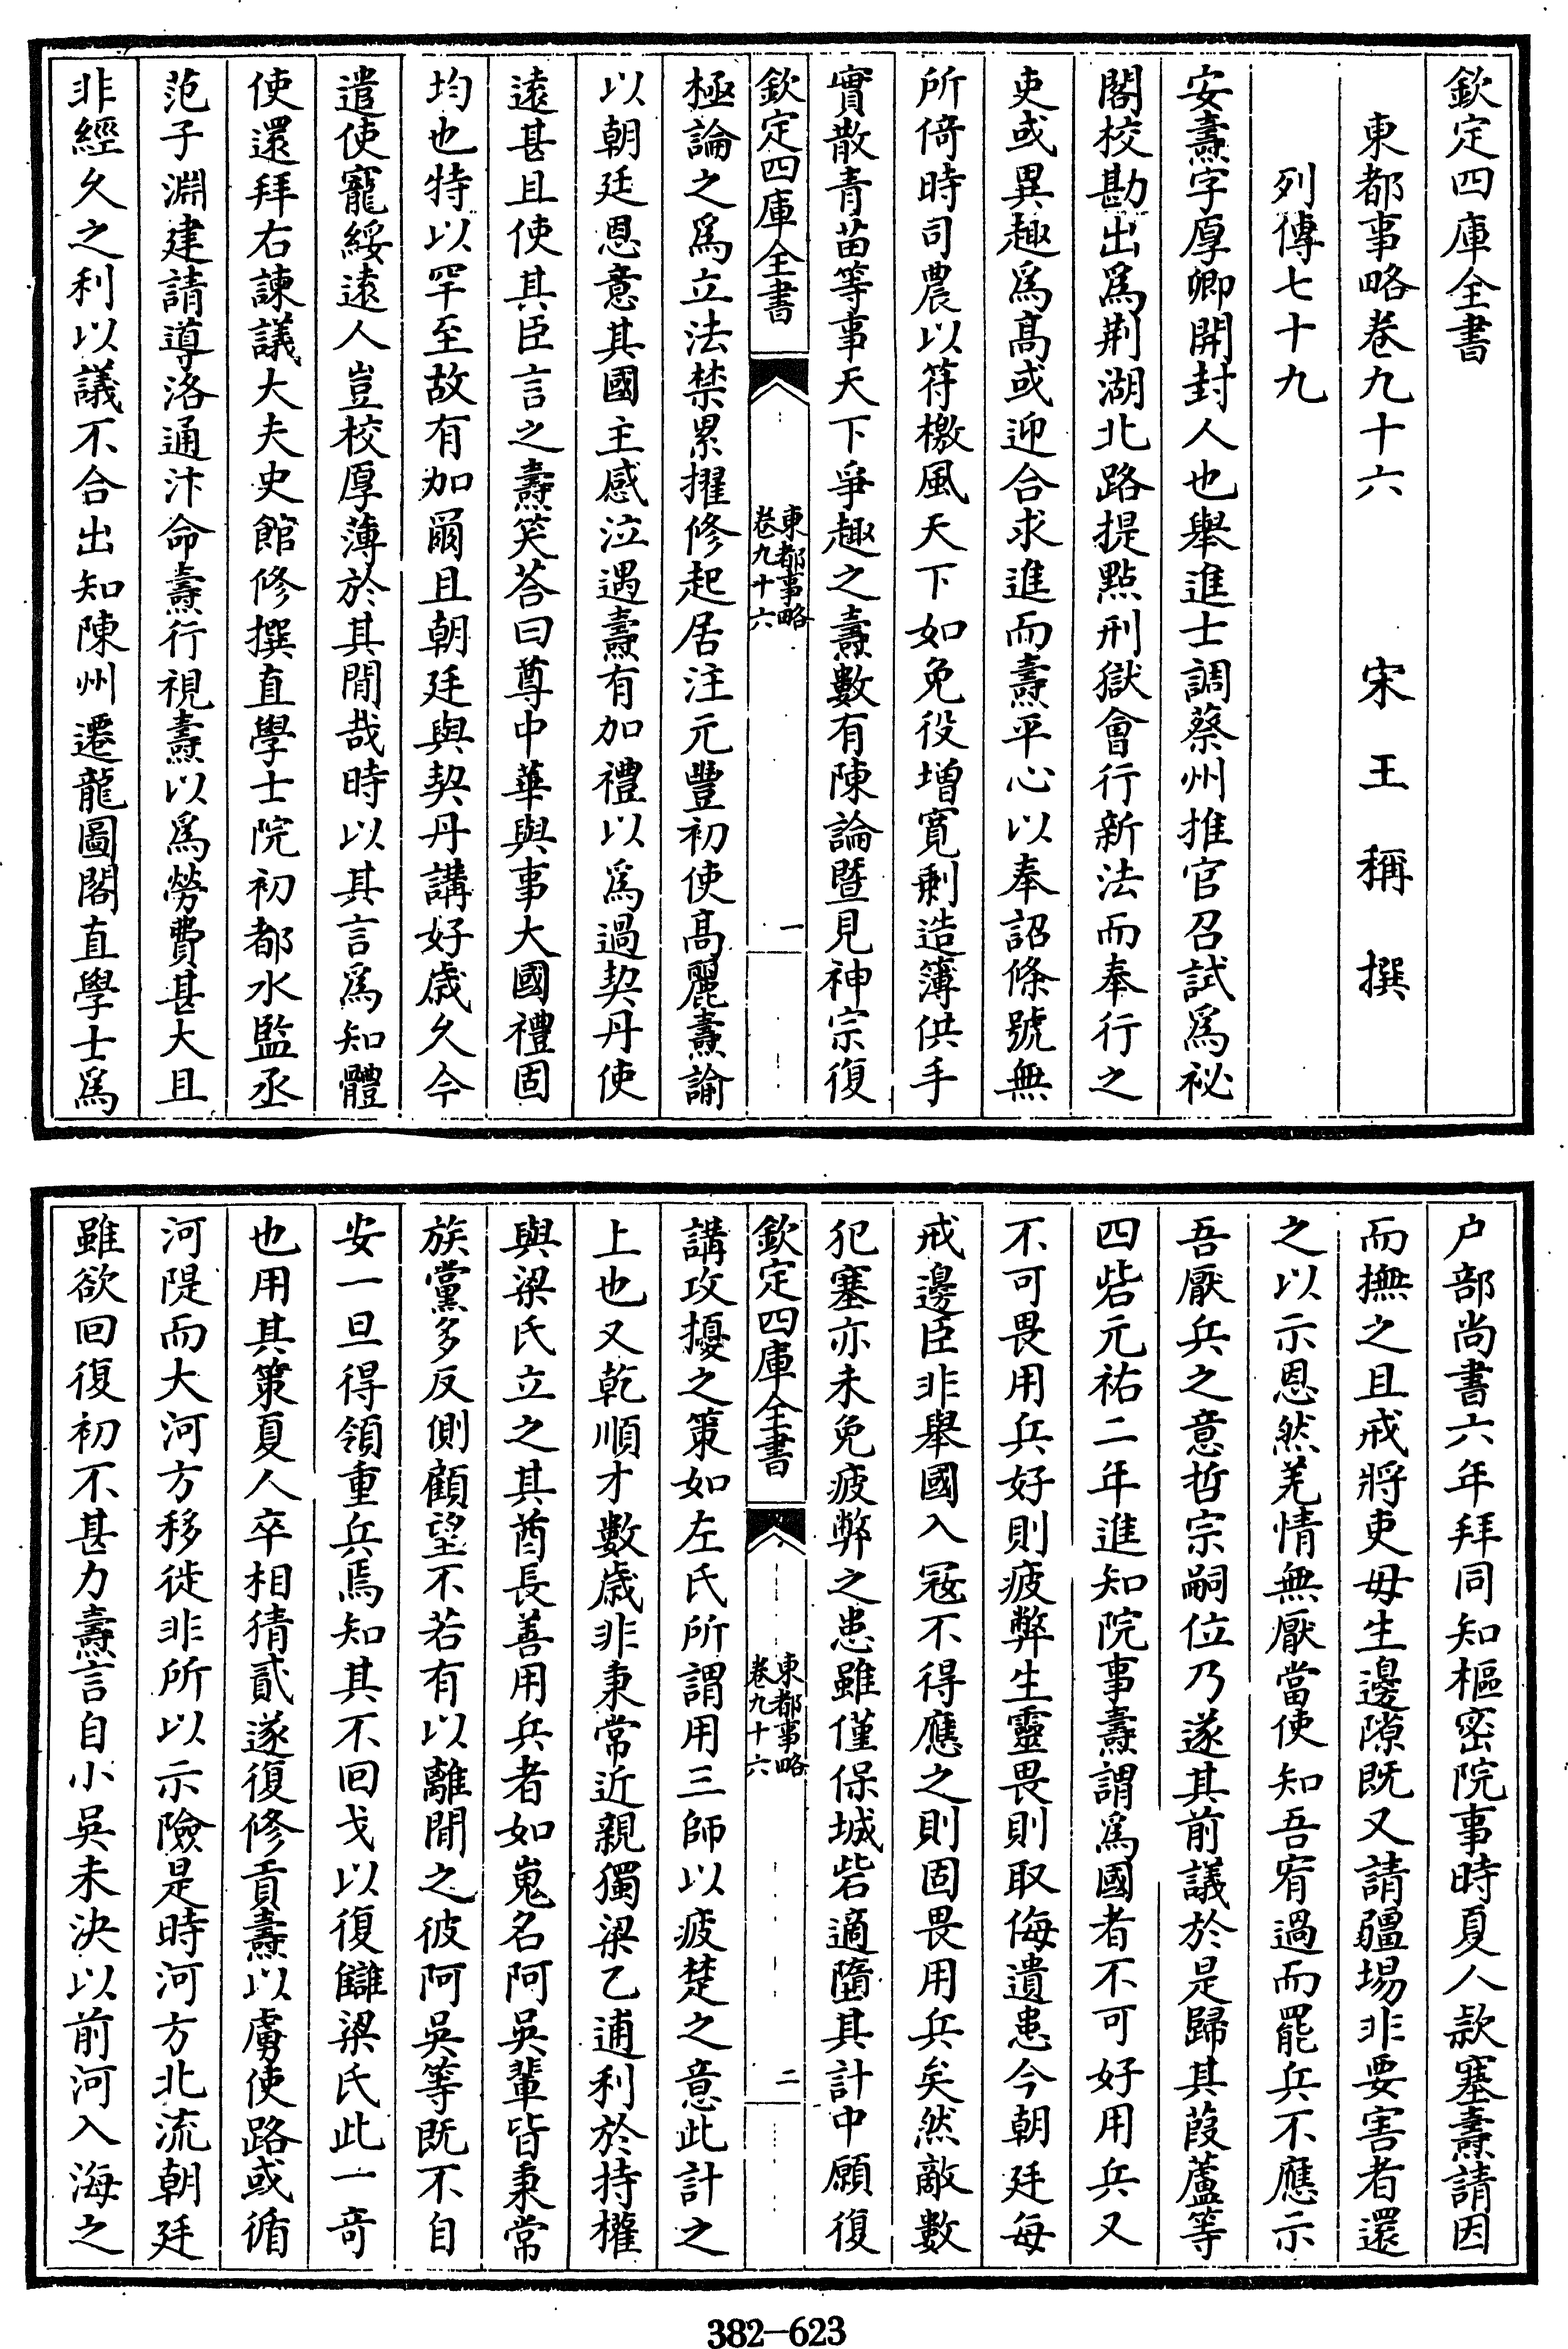 欽定四庫全書
東都事略卷九十六　宋　王　稱　撰
列傳七十九
安燾字厚卿開封人也舉進士調蔡州推官召試為祕
閣校勘出為荆湖北路提點刑獄會行新法而奉行之
吏或異趣為髙或迎合求進而燾平心以奉詔條號無
所倚時司農以符檄風天下如免役增寛剰造簿供手
實散青苗等事天下爭趣之燾數有陳論暨見神宗復
欽定四庫全書
東都事略
卷九十六
一
極論之為立法禁累擢修起居注元豐初使髙麗燾諭
以朝廷恩意其國主感泣遇燾有加禮以為過契丹使
逺甚且使其臣言之燾笑荅曰尊中華與事大國禮固
均也特以罕至故有加爾且朝廷與契丹講好歳久今
遣使寵綏逺人豈校厚薄於其閒哉時以其言為知體
使還拜右諫議大夫史館修撰直學士院初都水監丞
范子淵建請導洛通汴命燾行視燾以為勞費甚大且
非經久之利以議不合出知陳州遷龍圖閣直學士為
户部尚書六年拜同知樞密院事時夏人款塞燾請因
而撫之且戒將吏毋生邊隙既又請疆埸非要害者還
之以示恩然羌情無厭當使知吾宥過而罷兵不應示
吾厭兵之意哲宗嗣位乃遂其前議於是歸其葭蘆等
四砦元祐二年進知院事燾謂為國者不可好用兵又
不可畏用兵好則疲弊生靈畏則取侮遺患今朝廷每
戒邊臣非舉國入冦不得應之則固畏用兵矣然敵數
犯塞亦未免疲弊之患雖僅保城砦適隨其計中願復
欽定四庫全書
東都事略
卷九十六
二
講攻擾之策如左氏所謂用三師以疲楚之意此計之
上也又乾順才數歳非秉常近親獨梁乙逋利於持權
與梁氏立之其酋長善用兵者如嵬名阿吳輩皆秉常
族黨多反側顧望不若有以離閒之彼阿吳等既不自
安一旦得領重兵焉知其不回戈以復讎梁氏此一竒
也用其策夏人卒相猜貳遂復修貢燾以虜使路或循
河隄而大河方移徙非所以示險是時河方北流朝廷
雖欲回復初不甚力燾言自小吳未決以前河入海之
382-623